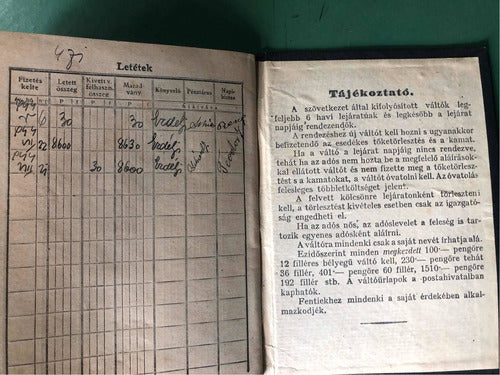 Letétek
Fizetés kelte
Letett összeg
Kivett v. felhaszn. összeg
Maradvány
Könyvelő
Pénztáros
P f P f P f
6 30 30 Erdelj
22 8600 8630 Erdelj
30 8600 Erdelj
Tájékoztató.
A szövetkezet által kifolyósitott váltók leg-
feljebb 6 havi lejáratúak és legkésőbb a lejárat
napjáig rendezendők.
A rendezéshez új váltót kell hozni s ugyanakkor
befizetendő az esedékes tőketörlesztés és a kamat.
Ha a váltó a lejárat napjáig nincs rendezve,
tehát ha az adós nem hozta be a megfelelő aláirások-
kal ellátott váltót és nem fizette meg a tőketörlesz-
tést s a kamatokat, a váltót óvatolni kell. Az óvatolás
felesleges többletköltséget jelent.
A felvett kölcsönre lejáratonként törleszteni
kell, a törlesztést kivételes esetben csak az igazgató-
ság engedheti el.
Ha az adós nős, az adóslevelet a feleség is tar-
tozik egyenes adósként aláírni.
A váltóra mindenki csak a saját nevét irhatja alá.
Ezidőszerint minden megkezdett 100·— pengőre
12 filléres bélyegű váltó kell, 230·— pengőre tehát
36 fillér, 401·— pengőre 60 fillér, 1510·— pengőre
192 fillér stb. A váltóűrlapok a postahivatalban
kaphatók.
Fentiekhez mindenki a saját érdekében alkal-
mazkodjék.